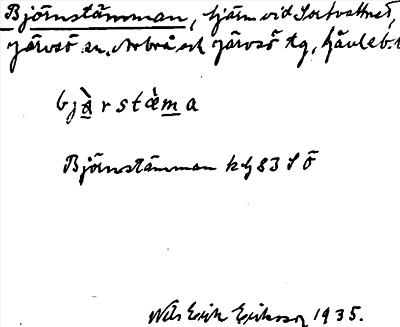 Björnstämman, tjärn vid Sortvattnet,
Järvsö sn, Arbrå och Järvsö tg, Gävleb. l
bjàrstæ̀ma
Björnstämman kbl 83 S Ö
Nils Erik Eriksson 1935.